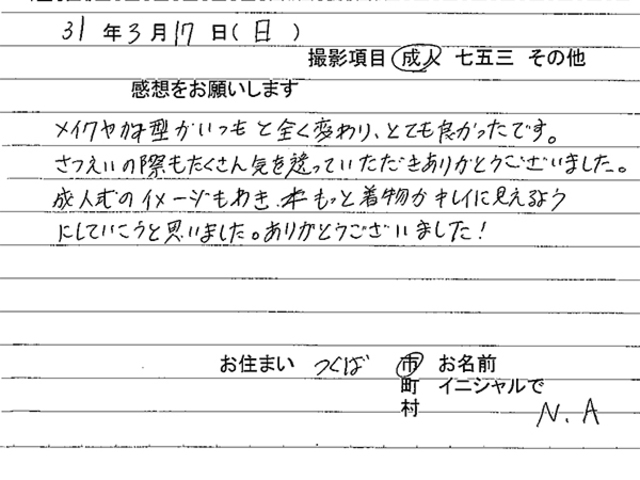 31年3月17日(日)
撮影項目 成人 七五三 その他
感想をお願いします
メイクやかみ型がいつもと全く変わり、とても良かったです。
さつえいの際もたくさん気を遣っていただきありがとうございました。
成人式のイメージもわき、もっと着物がキレイに見えるよう
にしていこうと思いました。ありがとうございました!
お住まい つくば 市 お名前
町 イニシャルで
村 N.A